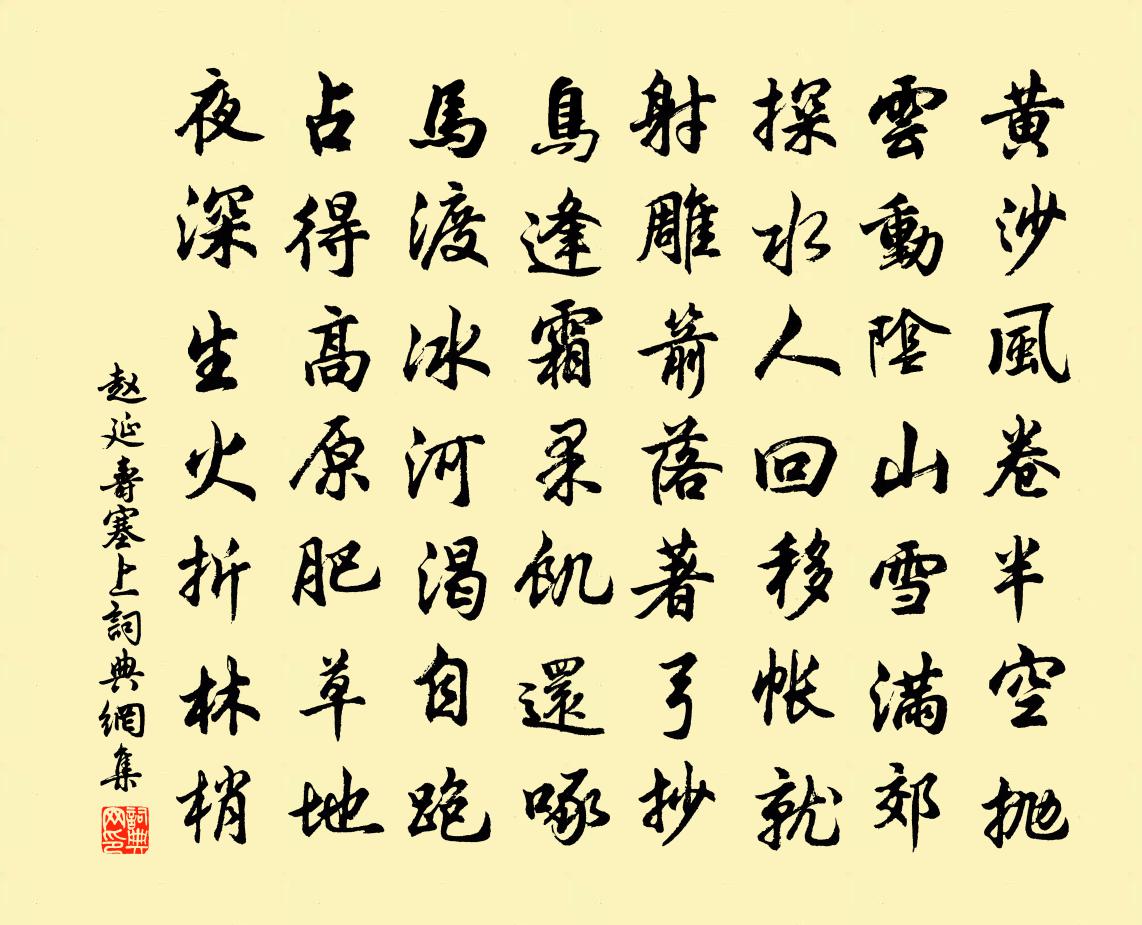 黄沙風卷半空抛
雲動陰山雪滿郊
探水人回移帳就
射雕箭落著弓抄
鳥逢霜果飢還啄
馬渡冰河渴自跑
占得高原肥草地
夜深生火折林梢
赵延壽塞上詞典網集
詞典網印